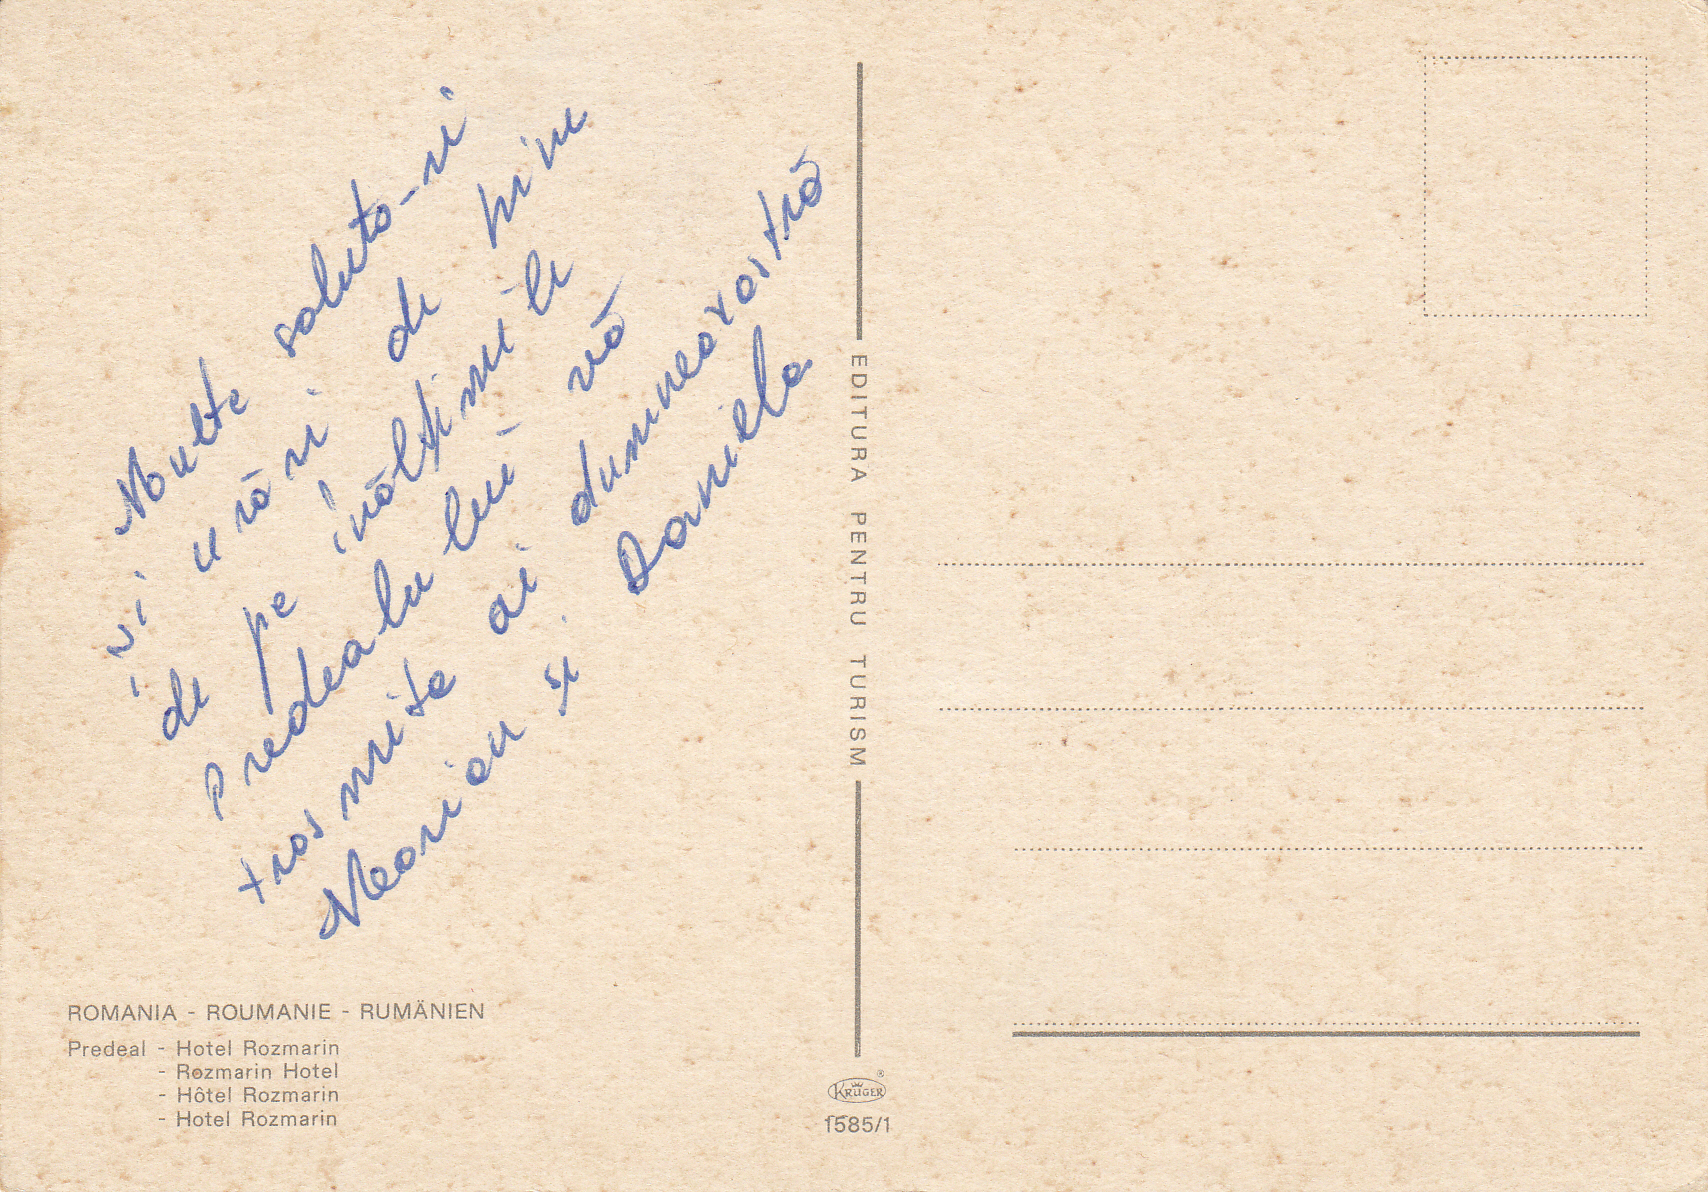 Multe saluta-ri
și urări de bine
de pe înălțimile
Predealului vă
trasmite ai dumneavoastră
Marian și Daniela
ROMANIA - ROUMANIE - RUMÄNIEN
Predeal - Hotel Rozmarin
- Rozmarin Hotel
- Hôtel Rozmarin
- Hotel Rozmarin
EDITURA PENTRU TURISM
KRÜGER ®
1585/1